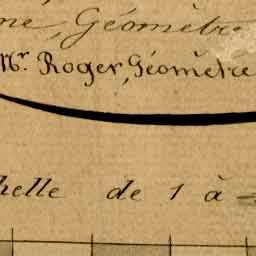 ne, Géomètre
Mr. Roger, Géomètre
helle de 1 à